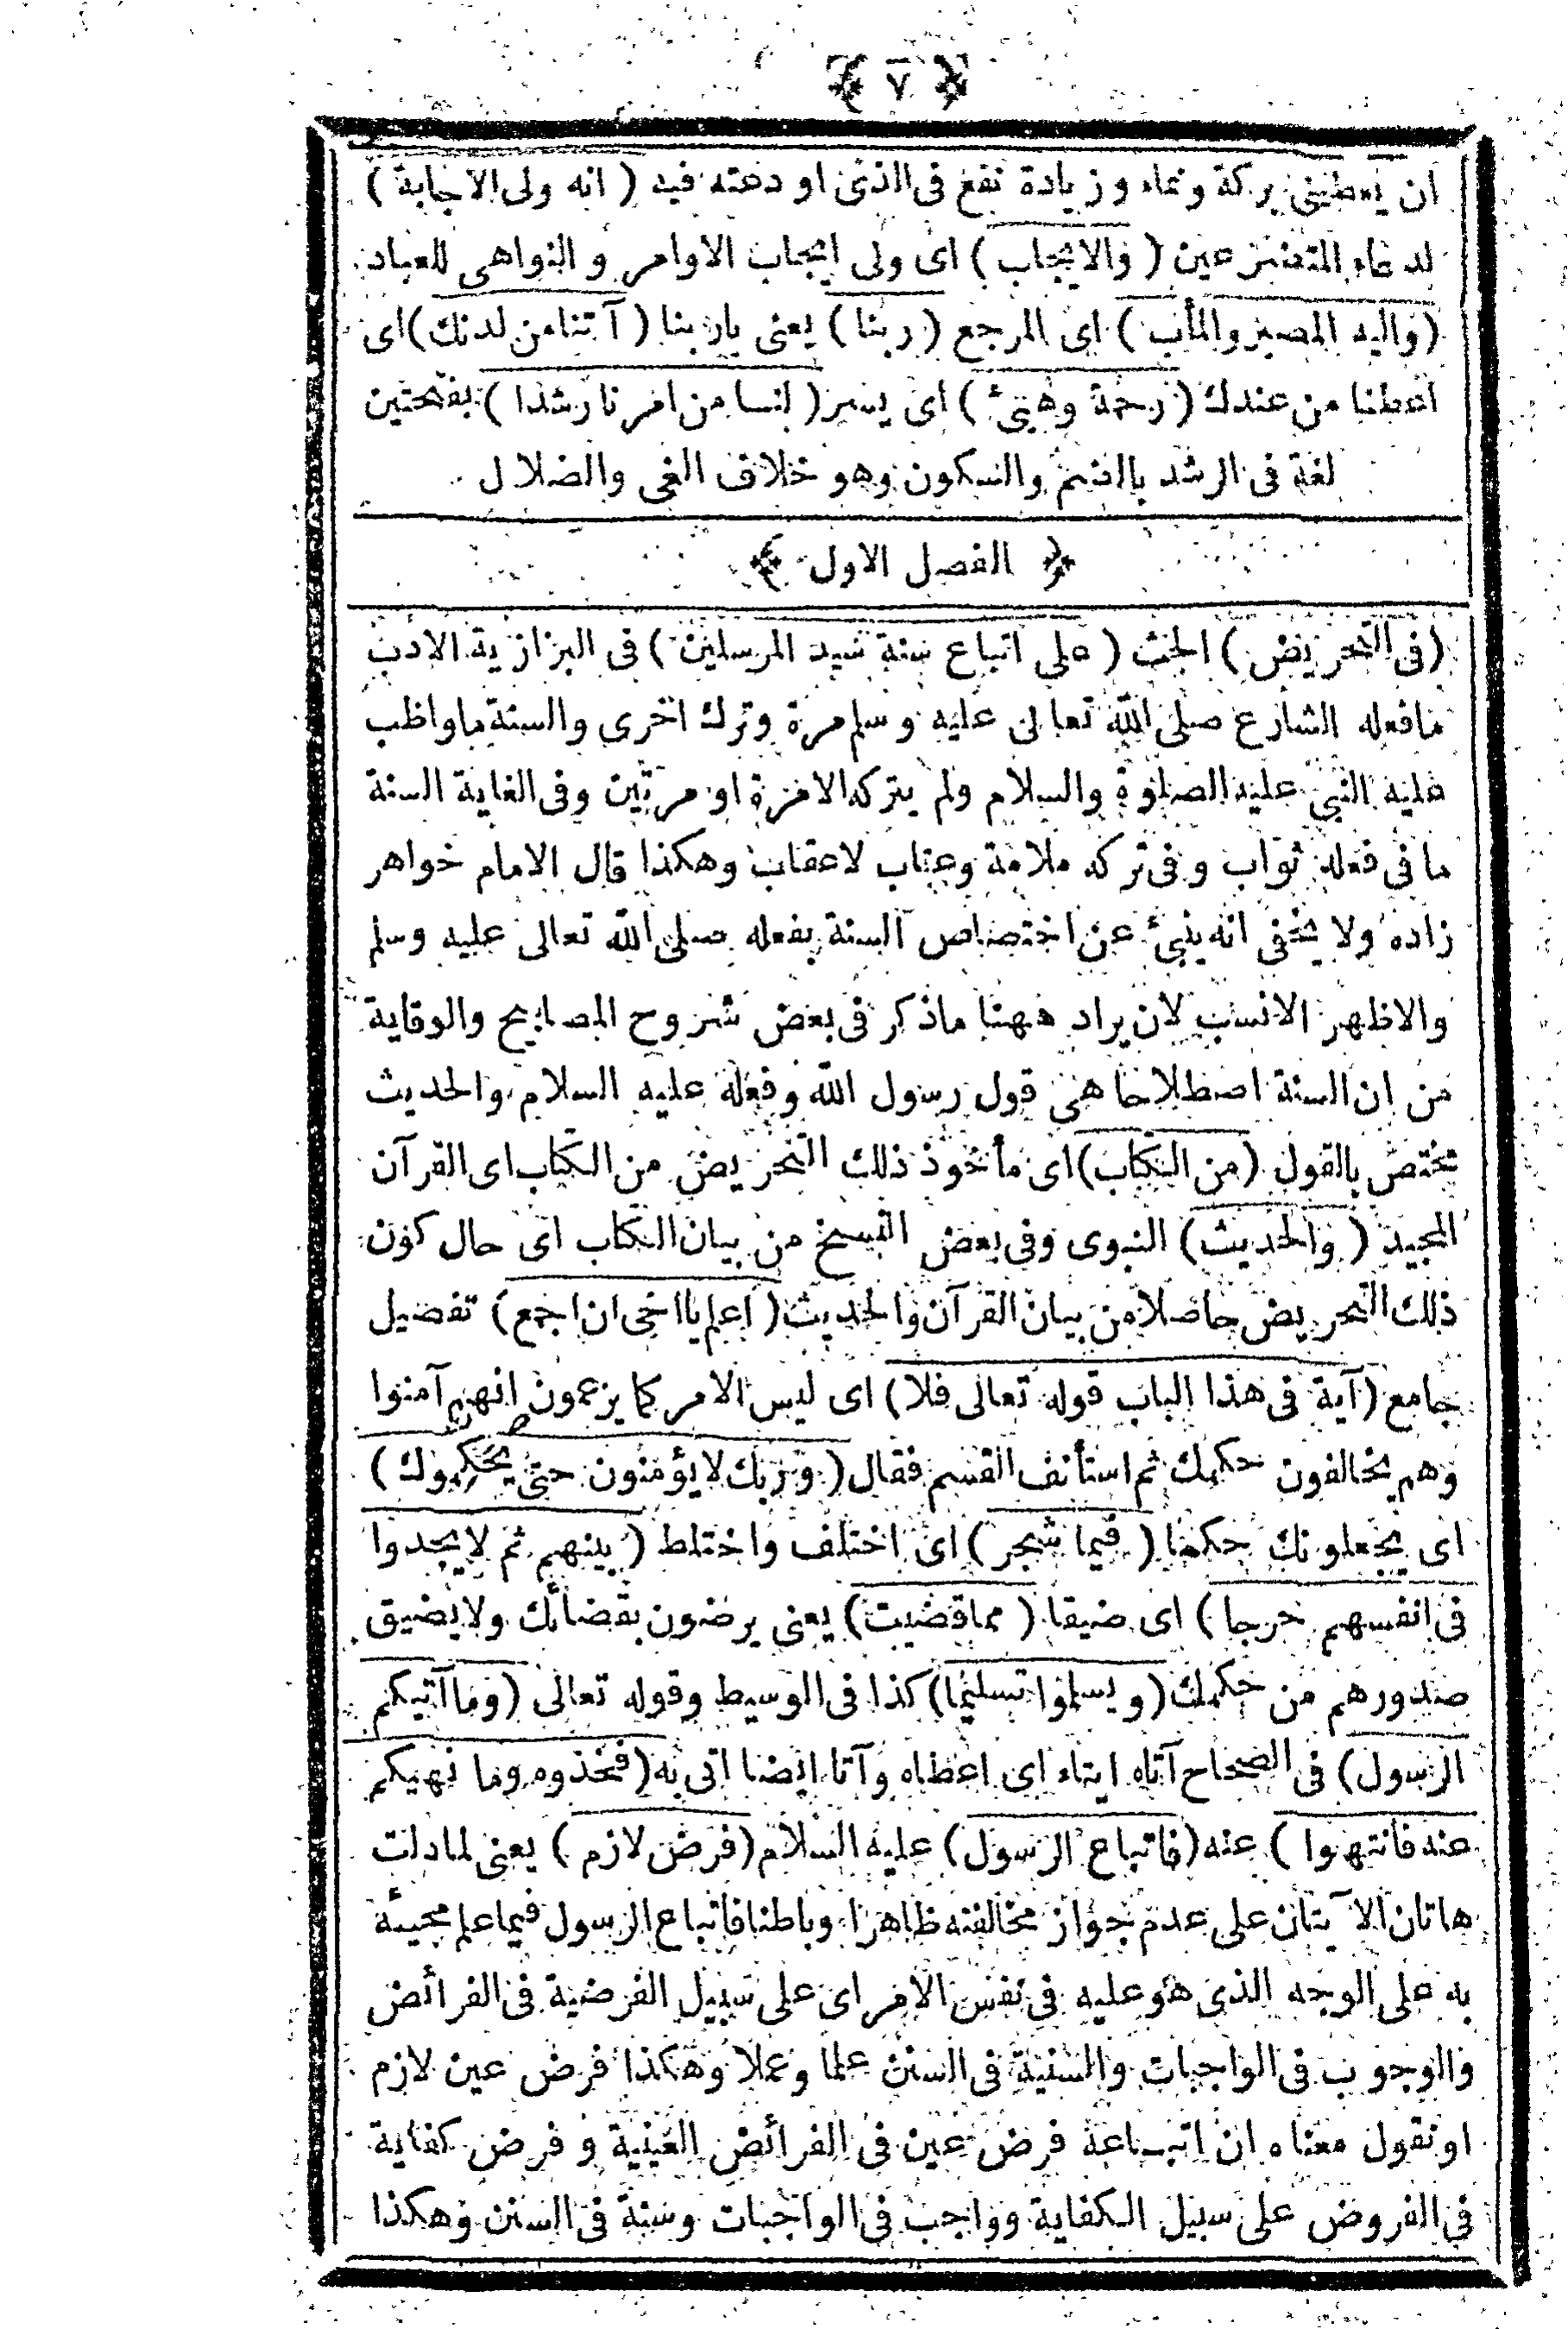 ﴿ ٧ ﴾
ان يعطينى بركة ونماء وزيادة نفع فى الذى اودعته فيه (انه ولى الاجابة)
لدعاء المتضرعين (والايجاب) اى ولى ايجاب الاوامر والنواهى للعباد
(واليه المصير والمأب) اى المرجع (ربنا) يعنى ياربنا (آتنا من لدنك) اى
اعطنا من عندك (رحمة وهيئ) اى يسر (لنا من امرنا رشدا) بفتحتين
لغة فى الرشد بالضم والسكون وهو خلاف الغى والضلال
﴿ الفصل الاول ﴾
(فى التحريض) الحث (على اتباع سنة سيد المرسلين) فى البزازية الادب
مافعله الشارع صلى الله تعالى عليه وسلم مرة وترك اخرى والسنة ماواظب
عليه النبى عليه الصلوة والسلام ولم يتركه الا مرة او مرتين وفى الغاية السنة
ما فى فعله ثواب وفى تركه ملامة وعتاب لاعقاب وهكذا قال الامام خواهر
زاده ولا يخفى انه ينبئ عن اختصاص السنة بفعله صلى الله تعالى عليه وسلم
والاظهر الانسب لان يراد ههنا ماذكر فى بعض شروح المصابيح والوقاية
من ان السنة اصطلاحا هى قول رسول الله وفعله عليه السلام والحديث
مختص بالقول (من الكتاب) اى مأخوذ ذلك التحريض من الكتاب اى القرآن
المجيد (والحديث) النبوى وفى بعض النسخ من بيان الكتاب اى حال كون
ذلك التحريض حاصلا من بيان القرآن والحديث (اعلم يااخى ان اجمع) تفضيل
جامع (آية فى هذا الباب قوله تعالى فلا) اى ليس الامر كما يزعمون انهم آمنوا
وهم يخالفون حكمك ثم استأنف القسم فقال (وربك لا يؤمنون حتى يحكموك)
اى يجعلونك حكما (فيما شجر) اى اختلف واختلط (بينهم ثم لايجدوا
فى انفسهم حرجا) اى ضيقا (مما قضيت) يعنى يرضون بقضائك ولا يضيق
صدورهم من حكمك (ويسلموا تسليما) كذا فى الوسيط وقوله تعالى (وما آتيكم
الرسول) فى الصحاح آتاه ايتاء اى اعطاه وآتا ايضا اتى به (فخذوه وما نهيكم
عنه فانتهوا) عنه (فاتباع الرسول) عليه السلام (فرض لازم) يعنى لما دلت
هاتان الآيتان على عدم جواز مخالفته ظاهرا وباطنا فاتباع الرسول فيما علم مجيئة
به على الوجه الذى هو عليه فى نفس الامر اى على سبيل الفرضية فى الفرائض
والوجوب فى الواجبات والسنية فى السنن علما وعملا وهكذا فرض عين لازم
او نقول معناه ان اتباعه فرض عين فى الفرائض العينية وفرض كفاية
فى الفروض على سبيل الكفاية وواجب فى الواجبات وسنة فى السنن وهكذا